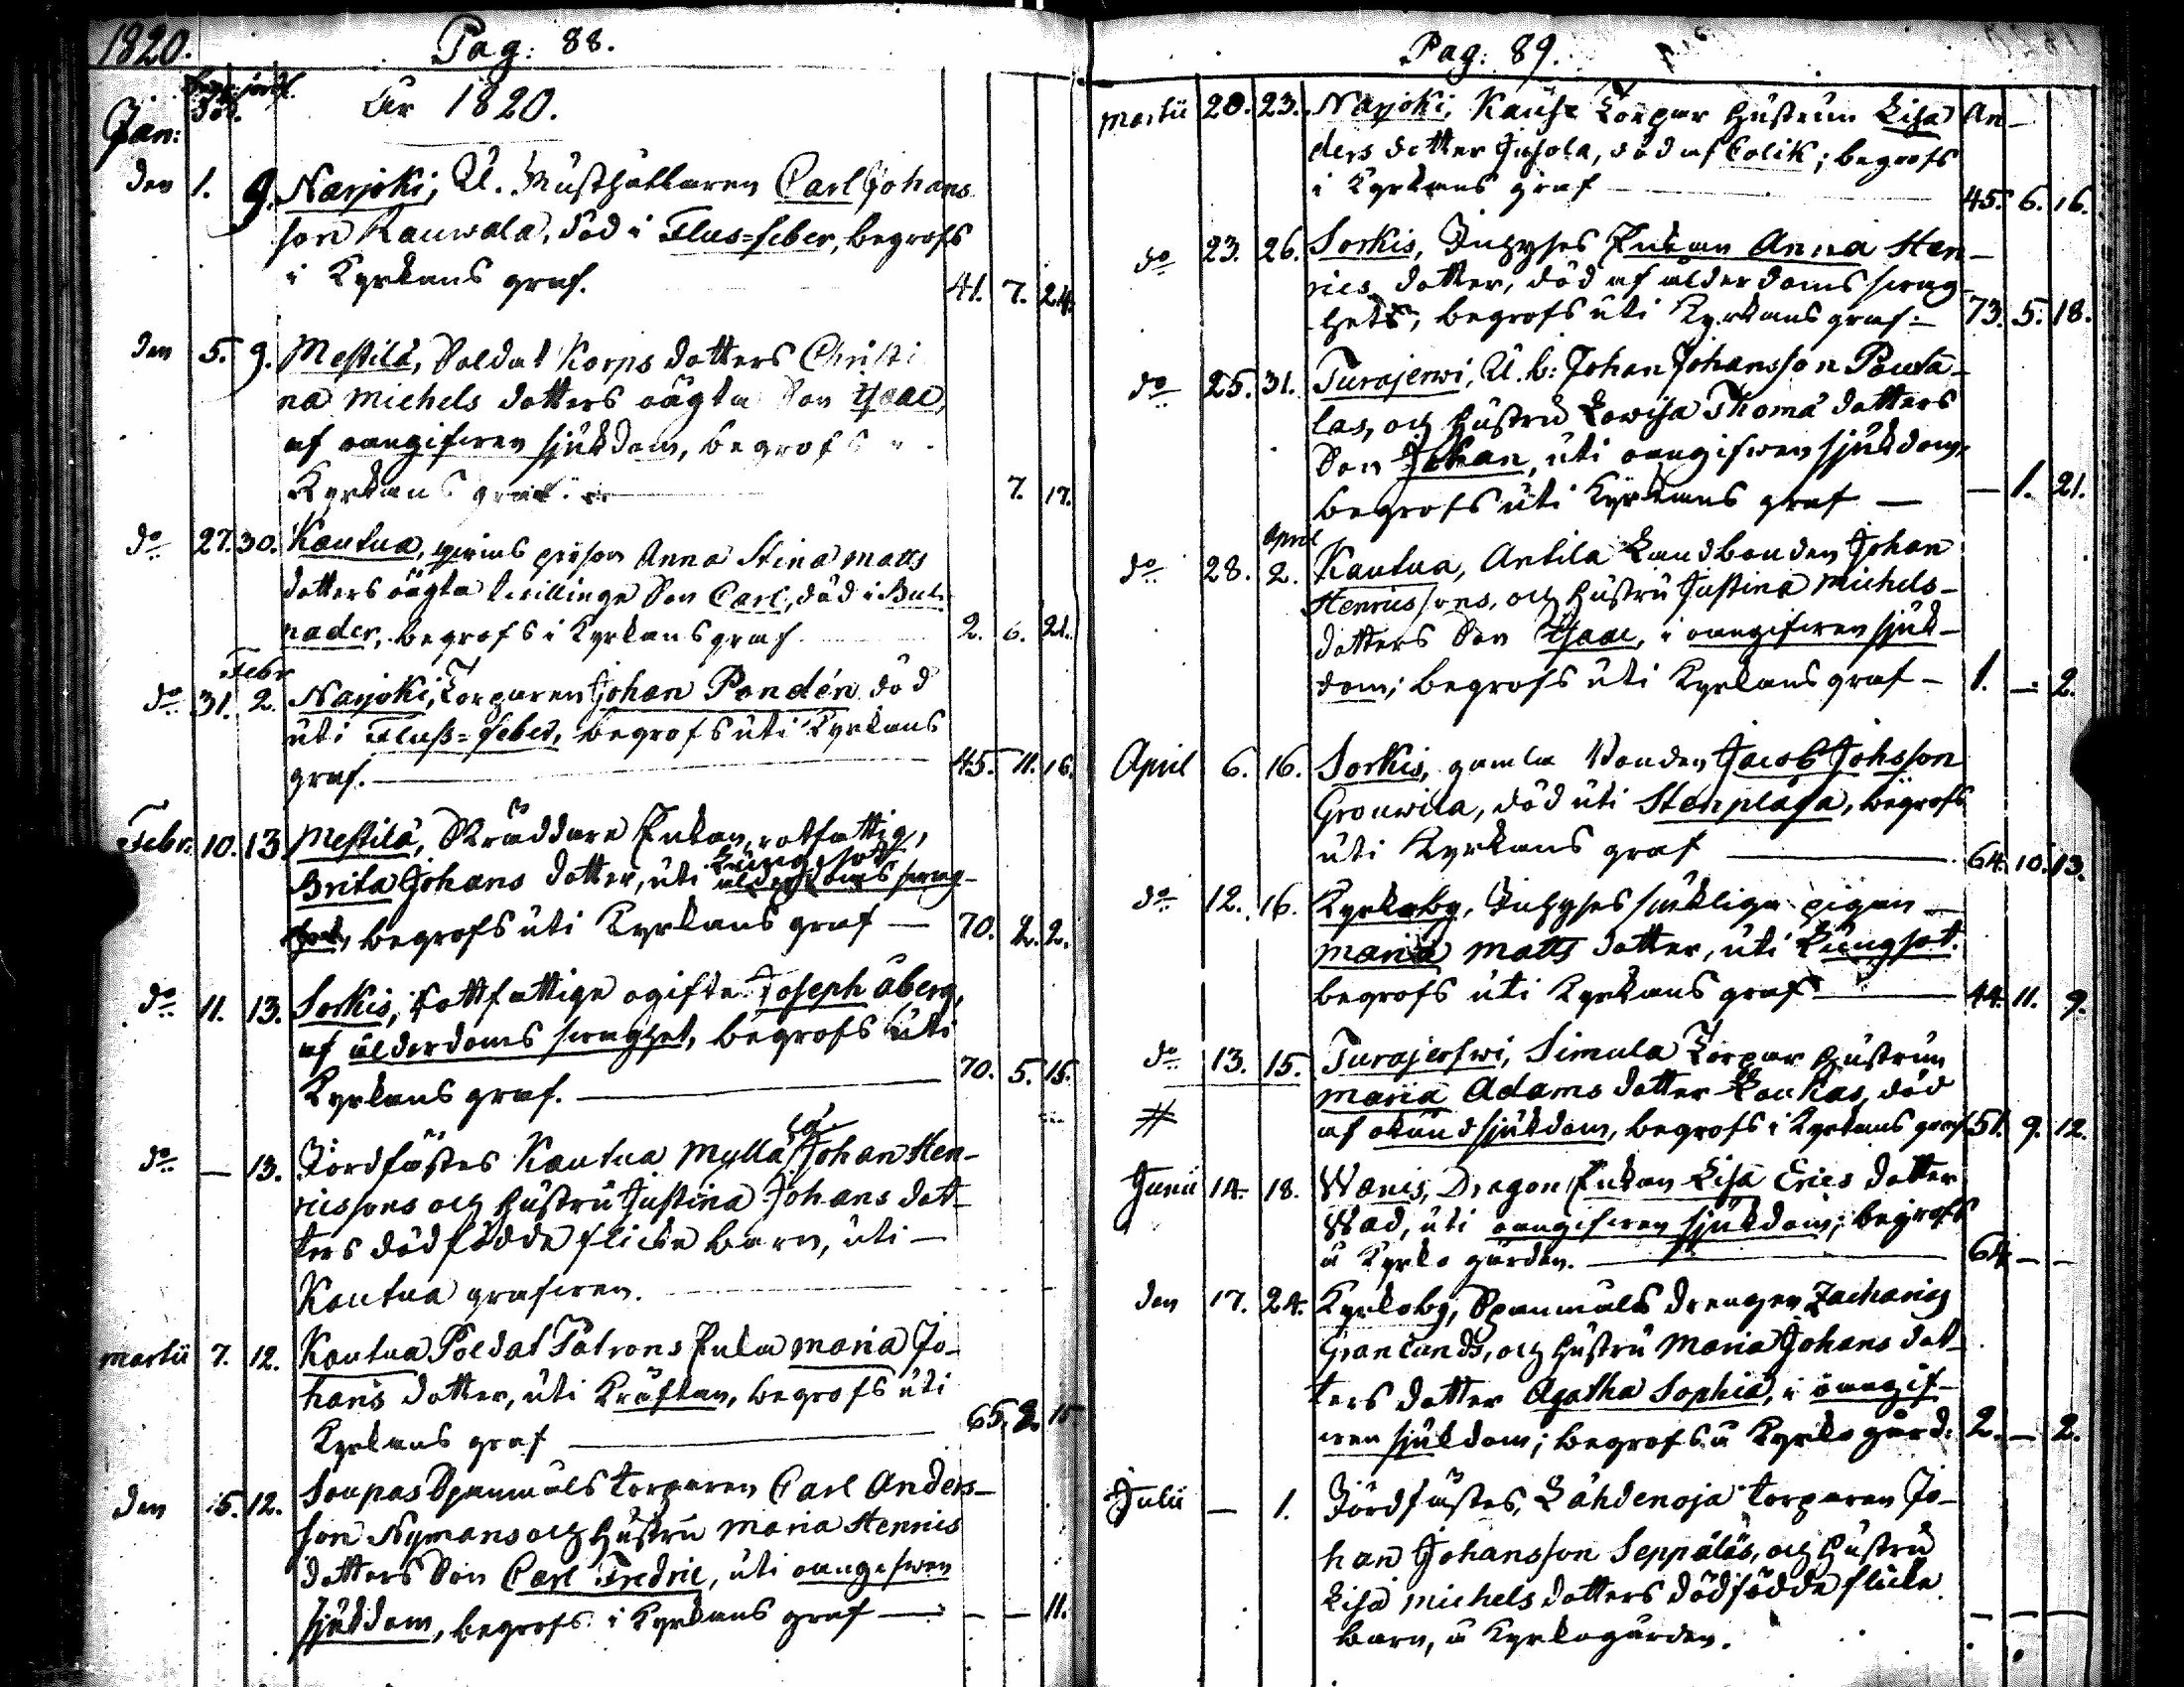 1820. Pag: 88.
Jan: Död. År 1820.
den 1. 9. Narjoki, U. Musthällaren Carl Johans
son Rauwala, död i Flus=feber, begrofs
i Kyrkans graf. 41. 7. 24.
den 5. 9. Mestilä, Soldat Korps dotters Christi
na Michels dotters oägta Son Isaac,
af oangifwen sjukdom, begrofs
Kyrkans graf. 7. 17.
do 27. 30. Kautua, person Anna Stina Matts
dotters oägta twillinge Son Carl, död i
nader, begrofs i Kyrkans graf. 2. 6. 21.
Febr
do 31. 2. Narjoki, Torparen Johan Pondén död
uti Fluss=feber, begrofs uti Kyrkans
graf. 45. 11. 16.
Febr. 10. 13. Mestilä, Skräddare Enkan, rotfattig,
Lungsot
Brita Johans dotter, uti ålderdoms swag-
het, begrofs uti Kyrkans graf 70. 2. 2.
do 11. 13. Sorkis, rottfattige ogifte Joseph Åberg,
af ålderdoms swaghet, begrofs uti
Kyrkans graf. 70. 5. 15.
do — 13. Jordfästes Kautua Mylläri Johan Hen-
ricssons och hustru Justina Johans dot-
ters dödfödde flicke barn, uti —
Kautua grafwen.
Martii 7. 12. Kautua Soldat Patrons Enka Maria Jo-
hans dotter, uti Kräftan, begrofs uti
Kyrkans graf 65. 2. 15
den 5. 12. Soupas Spanmåls torparen Carl Anders-
son Nymans och Hustru Maria Henrics
dotters Son Carl Fredric, uti oangifwen
sjukdom, begrofs i Kyrkans graf — — 11.
Pag: 89.
Martii 20. 23. Narjoki, Kause Torpar hustrun Lisa An-
ders dotter Jusola, död af Colik; begrofs
i Kyrkans graf 45. 6. 16.
do 23. 26. Sorkis, Inhyses Enkan Anna Hen-
rics dotter, död af ålderdoms swag-
het, begrofs uti Kyrkans graf. 73. 5. 18.
do 25. 31. Turajerwi, U.b: Johan Johansson Pouta-
las, och hustru Lowisa Thomä dotters
Son Johan, uti oangifwen sjukdom,
begrofs uti Kyrkans graf — — 1. 21.
April
do 28. 2. Kautua, Antila Landbonden Johan
Henricssons, och hustru Justina Michels-
dotters Son Isaac, i oangifwen sjuk-
dom; begrofs uti Kyrkans graf — 1. — 2.
April 6. 16. Sorkis, gamla Bonden Jacob Johsson
Grouwila, död uti Stenplåga, begrofs
uti Kyrkans graf 64. 10. 13.
do 12. 16. Kyrkoby, Inhyses sjukliga pigan —
Maria Matts dotter, uti Lungsot.
begrofs uti Kyrkans graf 44. 11. 9.
do 13. 15. Turajerfwi, Simula Torpar hustrun
Maria Adams dotter Loukas, död
# af okänd sjukdom, begrofs i Kyrkans graf 51. 9. 12.
Junii 14. 18. Wanis, Dragon Enkan Lisa Erics dotter
Wad, uti oangifwen sjukdom; begrofs
å Kyrko gården. 64 — —
den 17. 24. Kyrkoby, Spanmåls drengen Zacharias
Granlunds, och hustru Maria Johans dot-
ters dotter Agatha Sophia, i oangif-
wen sjukdom; begrofs å Kyrko gård. 2. — 2.
Julii — 1. Jordfästes, Lähdenoja torparen Jo-
han Johansson Seppäläs, och hustru
Lisa Michels dotters dödfödde flicke
barn, å Kyrkogården. — — —